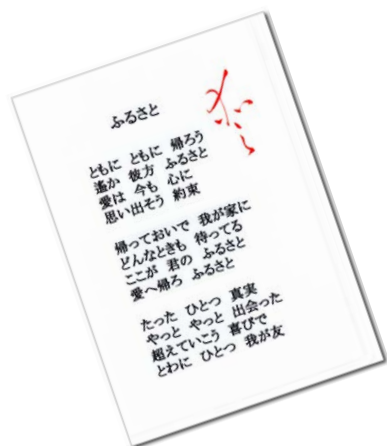 ふるさと
ともに ともに 帰ろう
遙か 彼方 ふるさと
愛は 今も 心に
思い出そう 約束
帰っておいで 我が家に
どんなときも 待ってる
ここが 君の ふるさと
愛へ帰ろ ふるさと
たった ひとつ 真実
やっと やっと 出会った
超えていこう 喜びで
とわに ひとつ 我が友